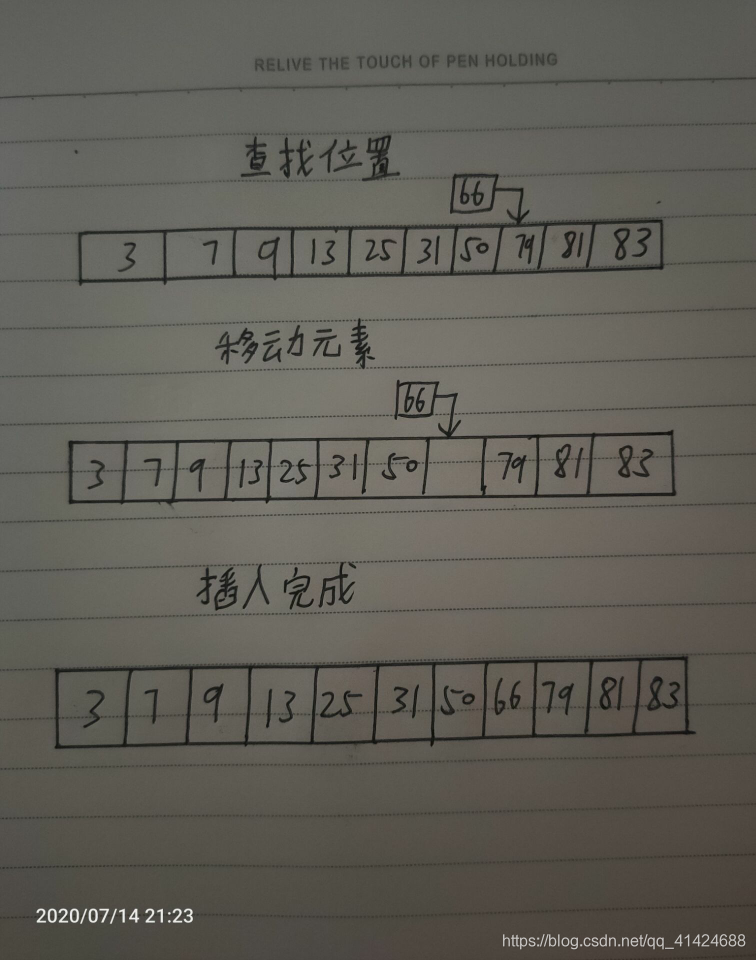 RELIVE THE TOUCH OF PEN HOLDING
查找位置
66
3 7 9 13 25 31 50 79 81 83
移动元素
66
3 7 9 13 25 31 50 79 81 83
插入完成
3 7 9 13 25 31 50 66 79 81 83
2020/07/14 21:23
https://blog.csdn.net/qq_41424688